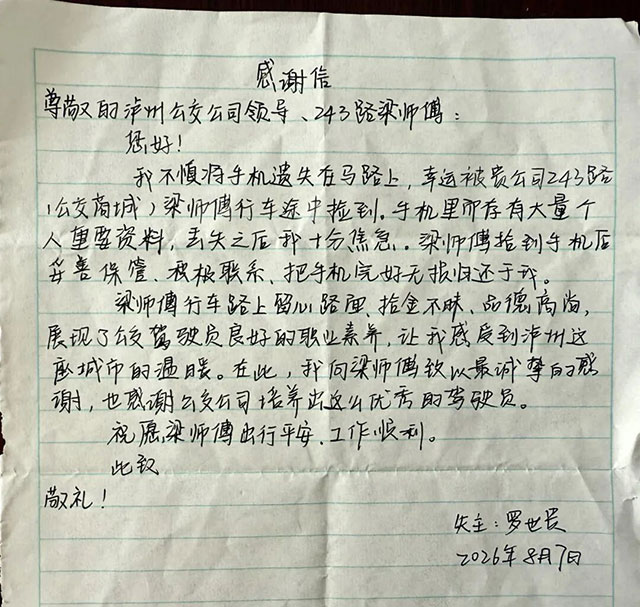 感谢信
尊敬的泸州公交公司领导、243路梁师傅：
您好！
我不慎将手机遗失在马路上，幸运被贵公司243路
（公交商城）梁师傅行车途中捡到。手机里面存有大量个
人重要资料，丢失之后我十分焦急。梁师傅捡到手机后
妥善保管、积极联系、把手机完好无损归还于我。
梁师傅行车路上留心路面、拾金不昧、品德高尚，
展现了公交驾驶员良好的职业素养，让我感受到泸州这
座城市的温暖。在此，我向梁师傅致以最诚挚的感
谢，也感谢公交公司培养出这么优秀的驾驶员。
祝愿梁师傅出行平安、工作顺利。
此致
敬礼！
失主：罗世
2026年8月7日